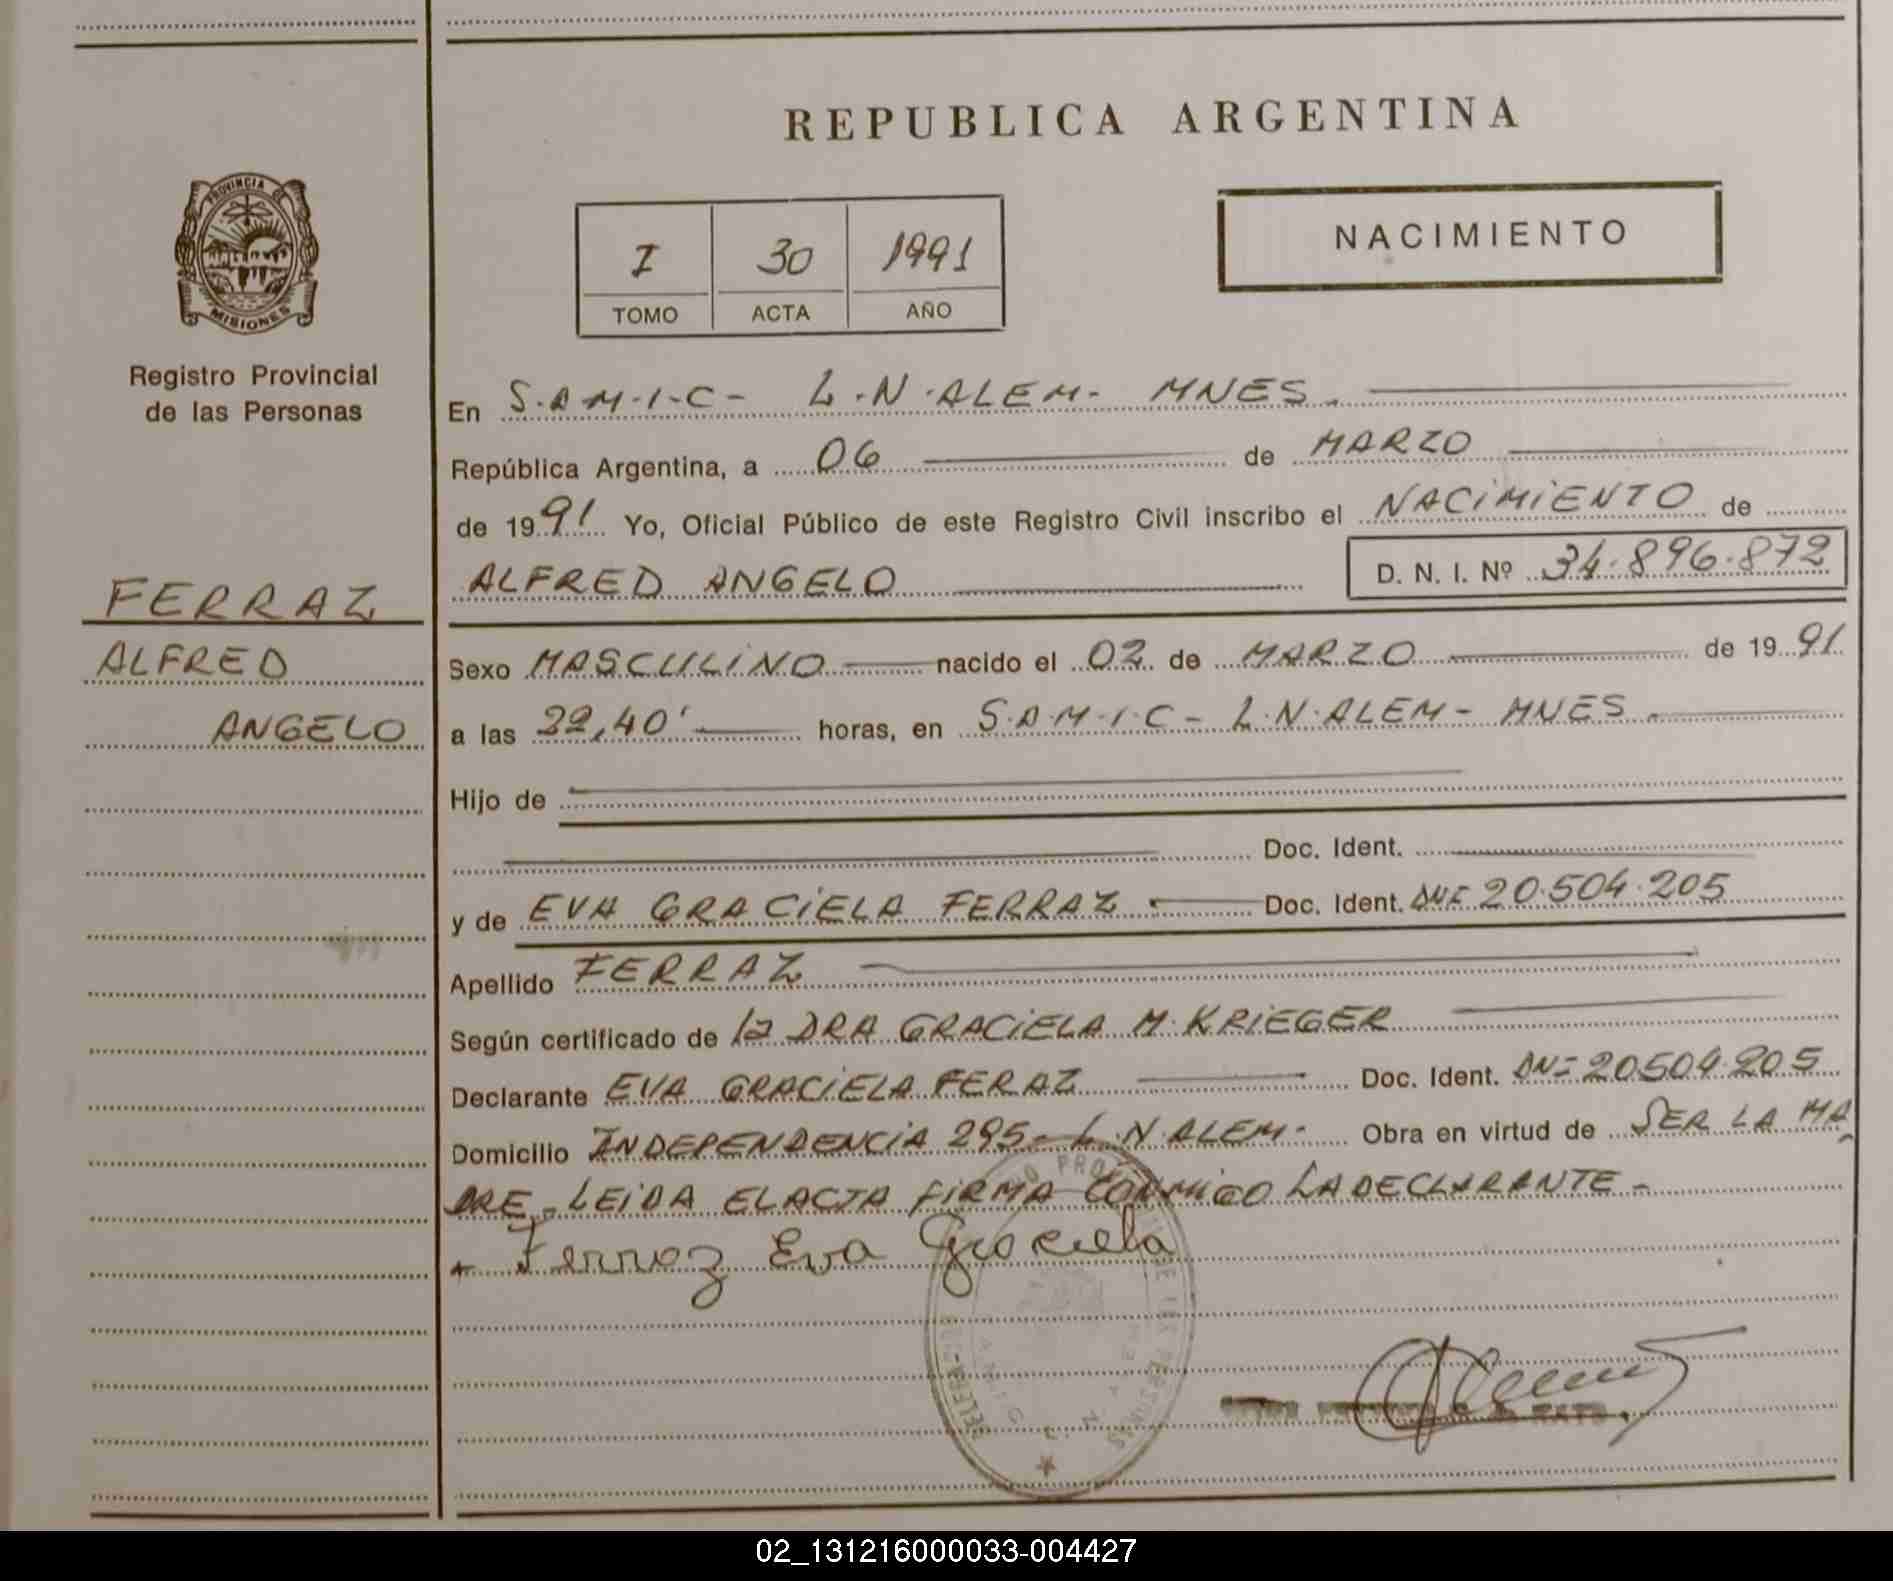 REPUBLICA ARGENTINA
PROVINCIA DE
MISIONES
Registro Provincial
de las Personas
NACIMIENTO
I 30 1991
TOMO ACTA AÑO
En S.A.M.I.C- L.N.ALEM- MNES.
República Argentina, a 06 de MARZO
de 1991 Yo, Oficial Público de este Registro Civil inscribo el NACIMIENTO de
ALFRED ANGELO D. N. I. Nº 34.896.872
FERRAZ
ALFRED
ANGELO
Sexo MASCULINO nacido el 02 de MARZO de 1991
a las 22,40' horas, en S.A.M.I.C- L.N.ALEM- MNES.
Hijo de
Doc. Ident.
y de EVA GRACIELA FERRAZ Doc. Ident. DNI 20.504.205
Apellido FERRAZ
Según certificado de la DRA GRACIELA M. KRIEGER
Declarante EVA GRACIELA FERAZ Doc. Ident. DN= 20504.205
Domicilio INDEPENDENCIA 295- L.N.ALEM- Obra en virtud de SER LA MA
DRE - LEIDA EL ACTA FIRMA CONMIGO LA DECLARANTE -
Ferraz Eva Graciela
02_131216000033-004427